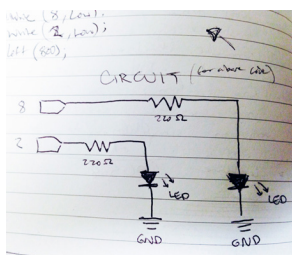 write (8, Low);
write (2, Low);
(800);
CIRCUIT (for above code)
8
220Ω
2
220Ω
LED
LED
GND
GND